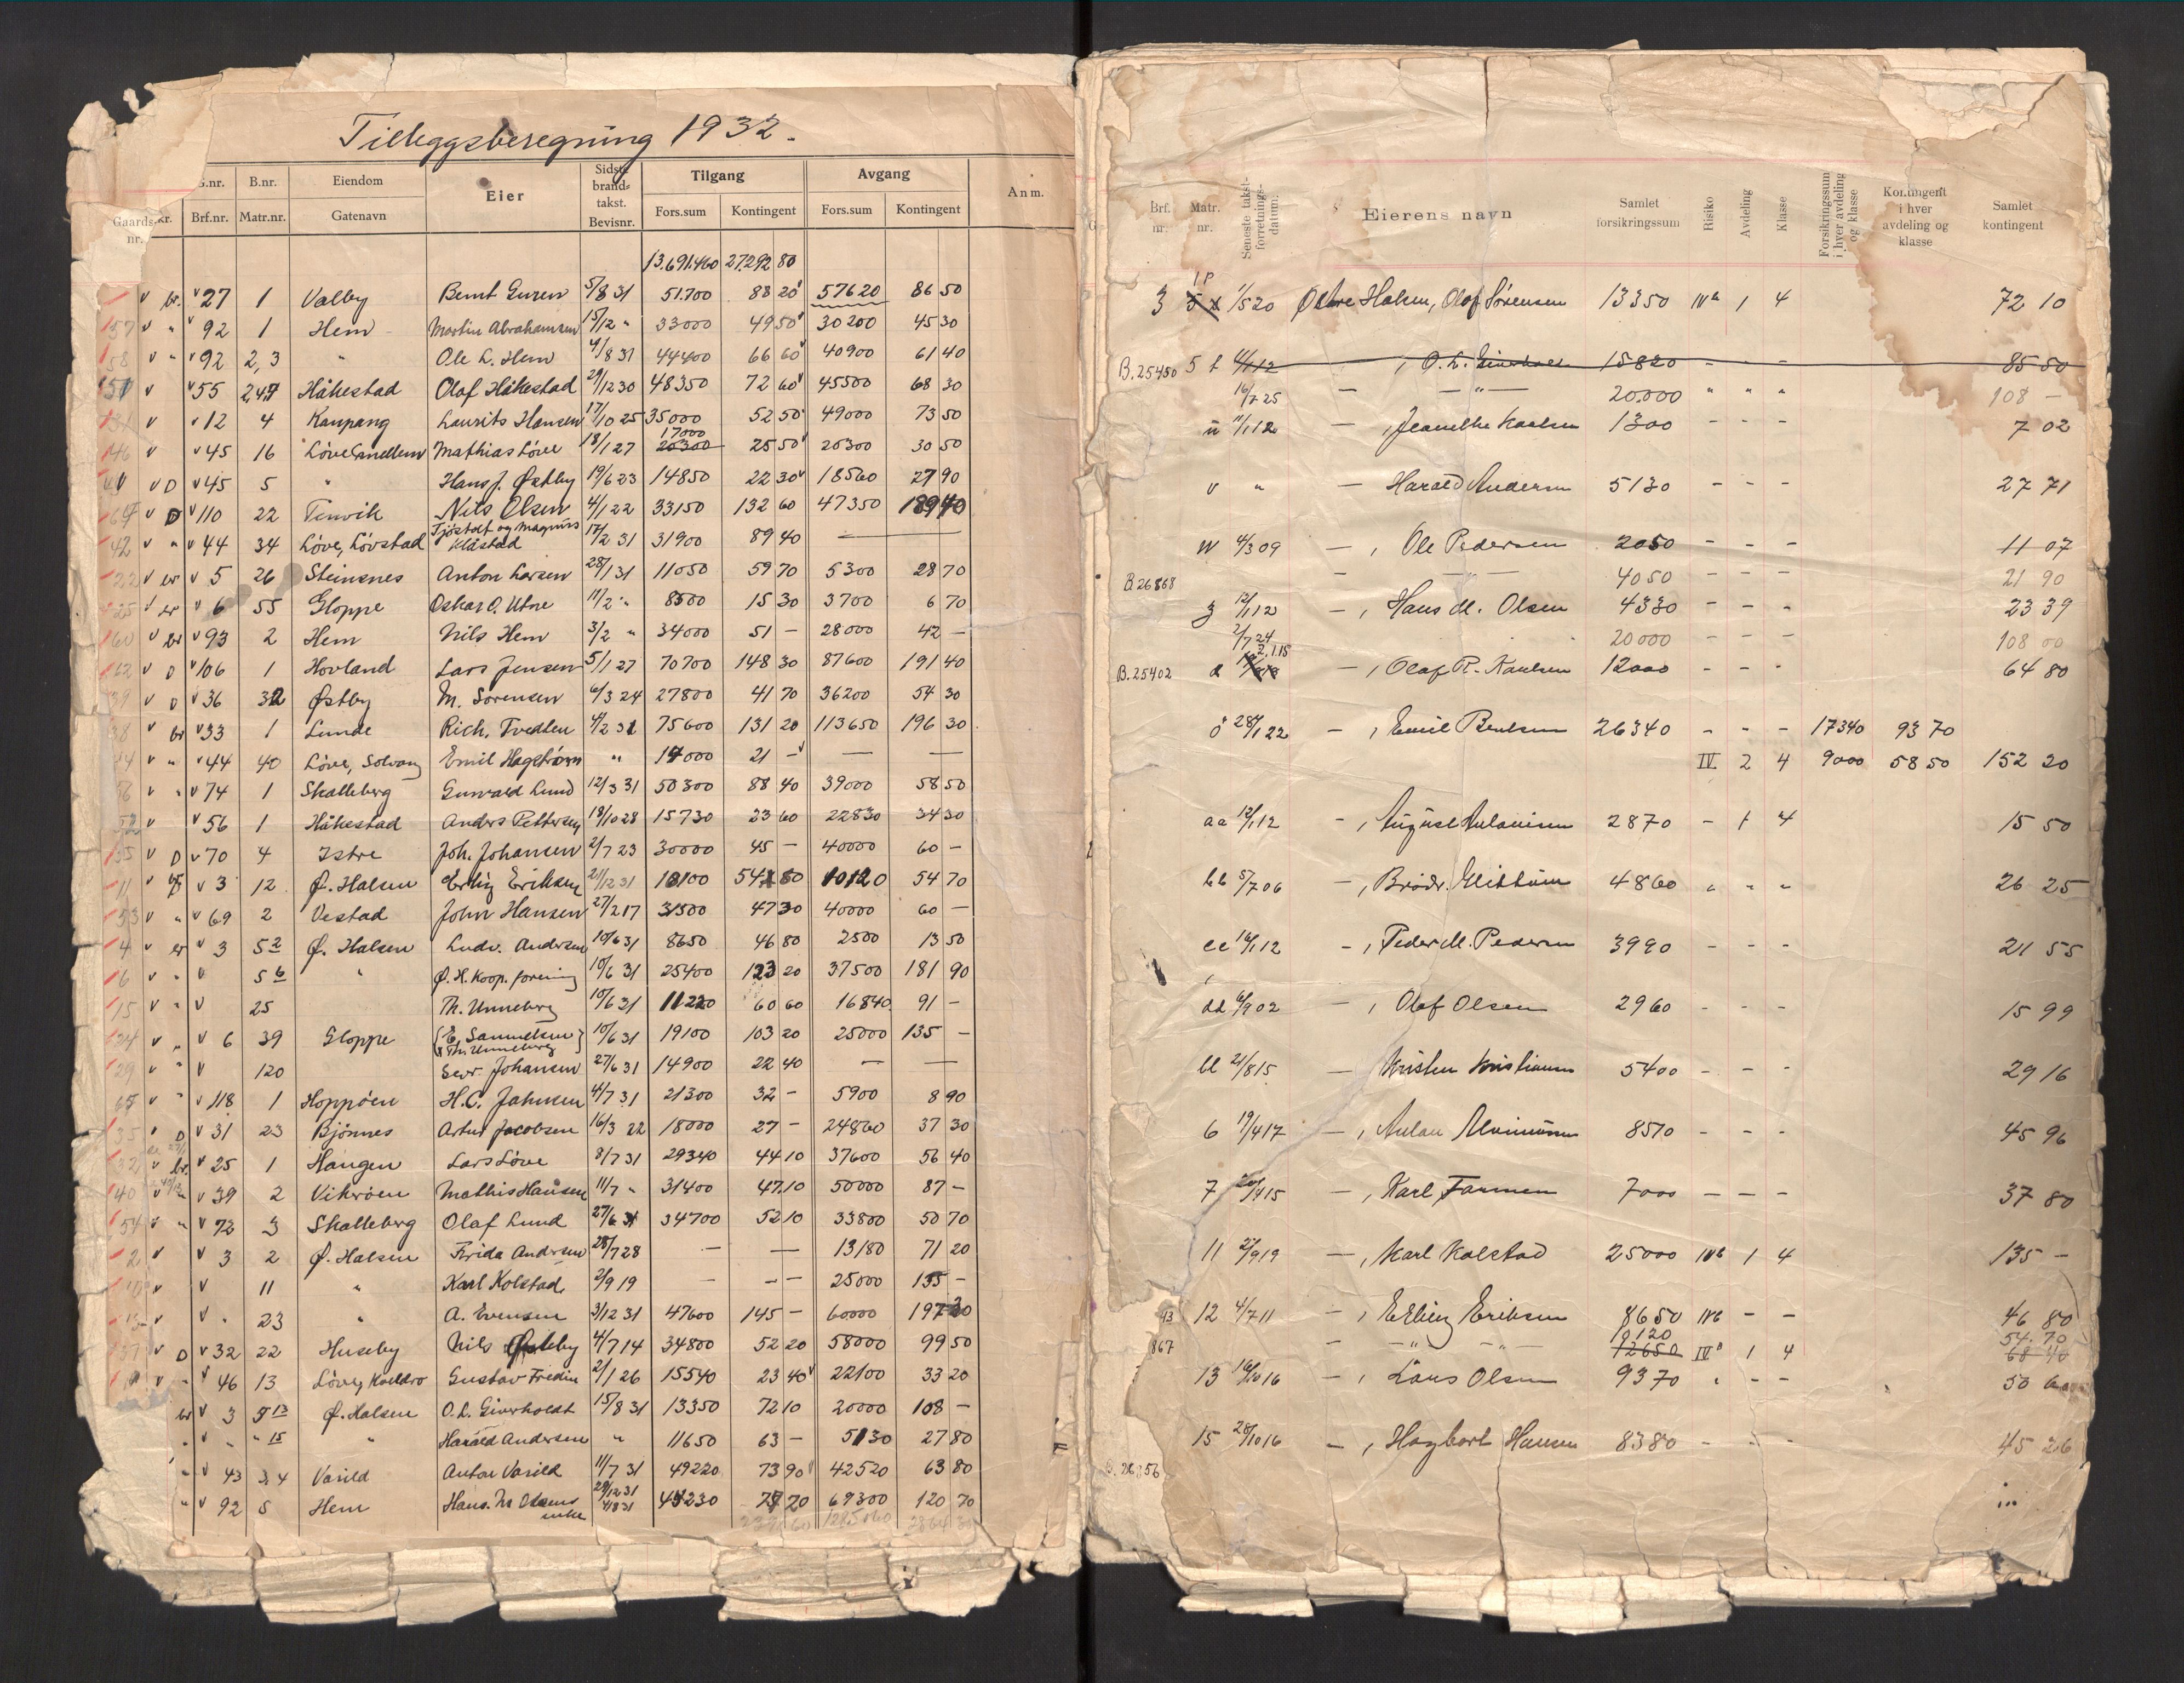 Tilleggsberegning 1932.
Gaards nr. kr. G.nr. Brf.nr. B.nr. Matr.nr. Eiendom Gatenavn Eier Sidste brand-takst. Bevisnr. Tilgang Fors.sum Kontingent Avgang Fors.sum Kontingent Anm.
13.691.460 27292 80
v br. v 27 1 Valby Bernt Guren 5/8 31 51.700 88 20 57620 86 50
157 v " v 92 1 Hem Martin Abrahamsen 15/12 " 33000 49 50 30200 45 30
158 v " v 92 2,3 " Ole L. Hem 4/8 31 44400 66 60 40900 61 40
v v 55 2,4,7 Håkestad Olaf Håkestad 29/12 30 48350 72 60 45500 68 30
131 v v 12 4 Kaupang Laurits Hansen 17/10 25 35000 52 50 49000 73 50
17000
146 v v 45 16 Løve mellem Mathias Løve 18/1 27 20300 25 50 20300 30 50
v D v 45 5 " Hans J. Østby 19/6 23 14850 22 30 18560 27 90
v D v 110 22 Tenvik Nils Olsen 4/1 22 33150 132 60 47350 189 40
42 v " v 44 34 Løve, Løvstad Tjöstolf og Magnus Klåstad 17/2 31 31900 89 40 —
22 v br v 5 26 Steinsnes Anton Larsen 28/1 31 11050 59 70 5300 28 70
25 v br v 6 55 Gloppe Oskar O. Utne 11/2 " 8500 15 30 3700 6 70
160 v br v 93 2 Hem Nils Hem 3/2 " 34000 51 – 28000 42 –
162 v D v 106 1 Hovland Lars Jensen 5/1 27 70700 148 30 87600 191 40
39 v D v 36 32 Østby M. Sørensen 6/3 24 27800 41 70 36200 54 30
38 v br v 33 1 Lunde Rich. Tvedten 4/2 31 75600 131 20 113650 196 30
v " v 44 40 Løve, Solvang Emil Hagstrøm " 14000 21 – — —
v " v 74 1 Skalleberg Gunvald Lund 12/3 31 50300 88 40 39000 58 50
52 v v 56 1 Håkestad Anders Pettersen 18/10 28 15730 23 60 22830 34 30
v D v 70 4 Istre Joh. Johansen 2/7 23 30000 45 – 40000 60 –
11 v br v 3 12 Ø. Halsen Erling Eriksen 21/12 31 10100 54 50 10120 54 70
53 v " v 69 2 Vestad John Hansen 27/2 17 31500 47 30 40000 60 –
4 v br v 3 5 2 Ø. Halsen Ludv. Andersen 10/6 31 8650 46 80 2500 13 50
6 v " v 5 6 " Ø. H. Koop. forening 10/6 31 25400 123 20 37500 181 90
15 v " v 25 Th. Unneberg 10/6 31 11220 60 60 16840 91 –
24 v " v 6 39 Gloppe E. Samuelsen & Th. Unneberg 10/6 31 19100 103 20 25000 135 –
29 v " v 120 Sevr. Johansen 27/6 31 14900 22 40 — —
v " v 118 1 Hoppøen H.C. Jahnsen 4/7 31 21300 32 – 5900 8 90
35 v D v 31 23 Bjönnes Artur Jacobsen 16/3 22 18000 27 – 24860 37 30
32 v br. v 25 1 Haugen Lars Løve 8/7 31 29340 44 10 37600 56 40
40 v " v 39 2 Vikrøen Mathis Hansen 11/7 " 31400 47.10 50000 87 –
54 v " v 72 3 Skalleberg Olaf Lund 27/6 31 34700 52 10 33800 50 70
2 v v 3 2 Ø. Halsen Frida Andersen 28/7 28 — — 13180 71 20
v v 11 " Karl Kolstad 2/9 19 — – – 25000 135 –
v v " 23 " A. Evensen 3/12 31 47600 145 – 60000 197 30
37 v D v 32 22 Huseby Nils Østby 4/7 14 34800 52 20 58000 99 50
v " v 46 13 Løve, Koldro Gustav Fredin 2/1 26 15540 23 40 22100 33 20
br v 3 5 13 Ø. Halsen O.L. Giverholdt 15/8 31 13350 72 10 20000 108 –
" v " " 15 " Harald Andersen " 11650 63 – 5130 27 80
" v 43 3,4 Varild Anton Varild 11/7 31 49220 73 90 42520 63 80
" v 92 5 Hem Hans. M. Olsens enke 29/12 31 4/8 31 44230 77 20 69300 120 70
1285060 2864 30
Brf. nr. Matr. nr. Seneste takst-forretnings-datum: Eierens navn Samlet forsikringssum Risiko Avdeling Klasse Forsikringssum i hver avdeling og klasse Kontingent i hver avdeling og klasse Samlet kontingent
1 P
3 1/5 20 Østre Halsen, Olaf Sørensen 13350 IVb 1 4 72 10
B.25450 5 t 4/1 12 —, O. L. Giverholdt 15820 - - - 85 50
16/7 25 — —"— 20.000 " " " 108 –
u 11/1 12 —, Jeanethe Karlsen 1300 - - - 7 02
v " — Harald Andersen 5130 - - - 27 71
W 4/3 09 —, Ole Pedersen 2050 - - - 11 07
B 26868 — —"— 4050 - - - 21 90
z 12/1 12 —, Hans M. Olsen 4330 - - - 23 39
2/7 24 20000 - - - 108 00
B.25402 2.1.15 —, Olaf R. Karlsen 12000 - - - 64 80
ö 28/1 22 —, Emil Berntsen 26340 - - - 17340 93 70
IV. 2 4 9000 58 50 152 20
aa 12/1 12 —, August Antonisen 2870 - 1 4 15 50
bb 5/7 06 —, Brødr. Glittum 4860 " " " 26 25
cc 16/1 12 —, Peder M. Pedersen 3990 - - - 21 55
dd 6/9 02 —, Olaf Olsen 2960 - - - 15 99
ll 21/8 15 — Kristen Kristiansen 5400 - - - 29 16
6 19/4 17 —, Anton 8510 - - - 45 96
7 20/4 15 —, Karl Farmen 7000 – – – 37 80
11 2/9 19 —, Karl Kolstad 25000 IVb 1 4 135 –
93 12 4/7 11 —, Erling Eriksen 8650 IVb – – 46 80
10120 54.70
867 — —"— 12650 IVb 1 4 68 40
13 16/10 16 —, Lars Olsen 9370 " - - 50 60
15 28/10 16 —, Hagbart Hansen 8380 - - - 45 26
B. 26356